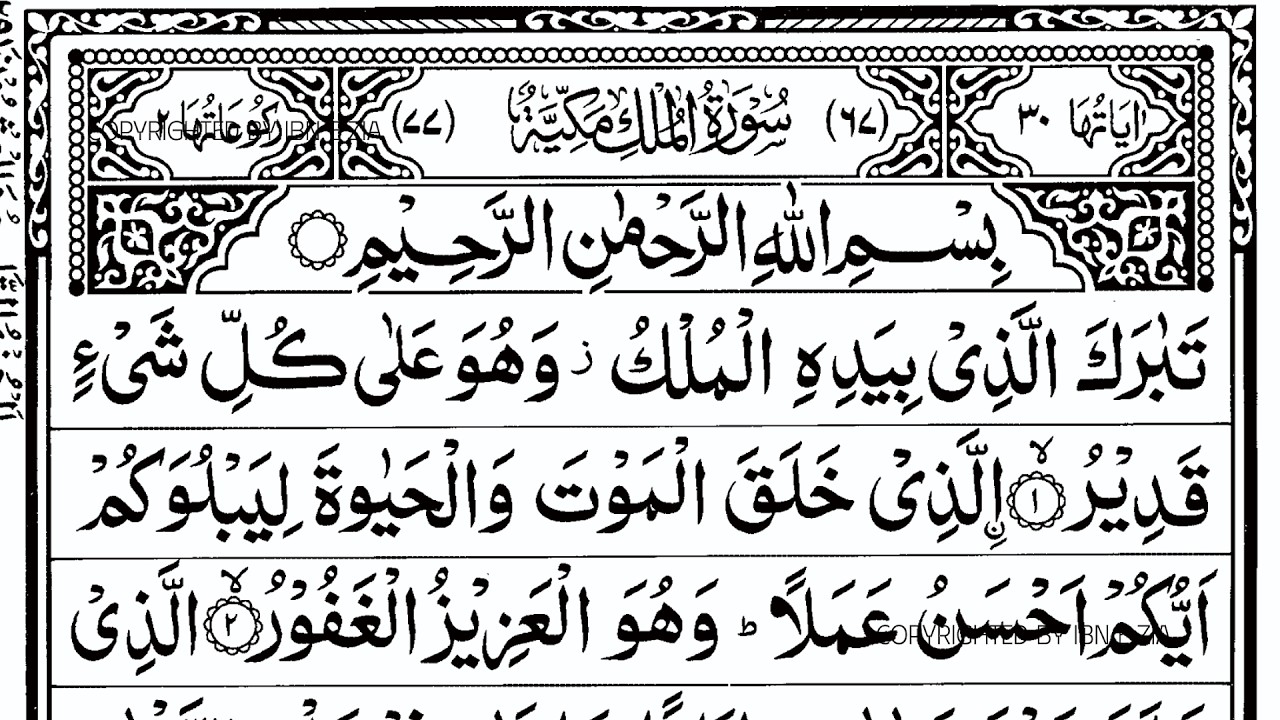 اٰيَاتُهَا ٣٠ (٦٧) سُوْرَةُ الْمُلْكِ مَكِّيَّةٌ (٧٧) رُكُوْعَاتُهَا ٢
COPYRIGHTED BY IBN-E-ZIA
بِسْمِ اللّٰهِ الرَّحْمٰنِ الرَّحِيْمِ
تَبٰرَكَ الَّذِىْ بِيَدِهِ الْمُلْكُ ز وَهُوَ عَلٰى كُلِّ شَىْءٍ
قَدِيْرُ ۙ﴿١﴾ اۨلَّذِىْ خَلَقَ الْمَوْتَ وَالْحَيٰوةَ لِيَبْلُوَكُمْ
اَيُّكُمْ اَحْسَنُ عَمَلًا ؕ وَهُوَ الْعَزِيْزُ الْغَفُوْرُ ۙ﴿٢﴾ الَّذِىْ
COPYRIGHTED BY IBN-E-ZIA